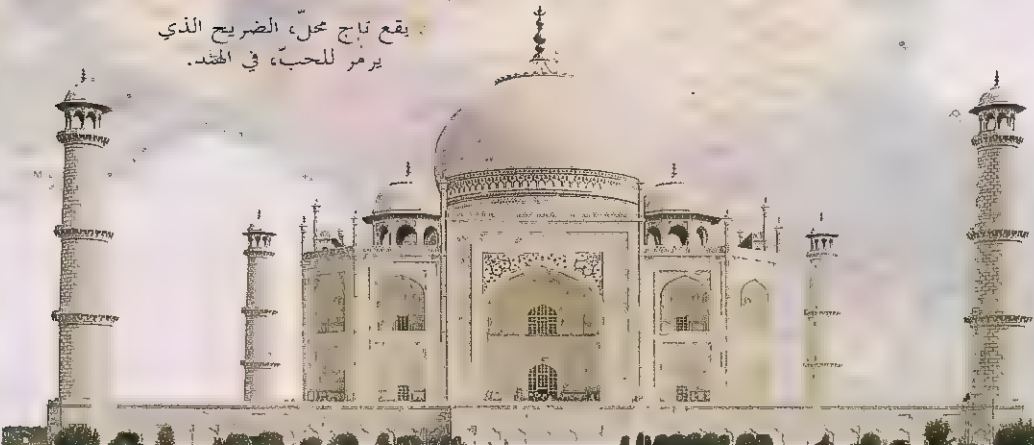 يقع تاج محلّ، الضريح الذي
يرمز للحبّ، في الهند.